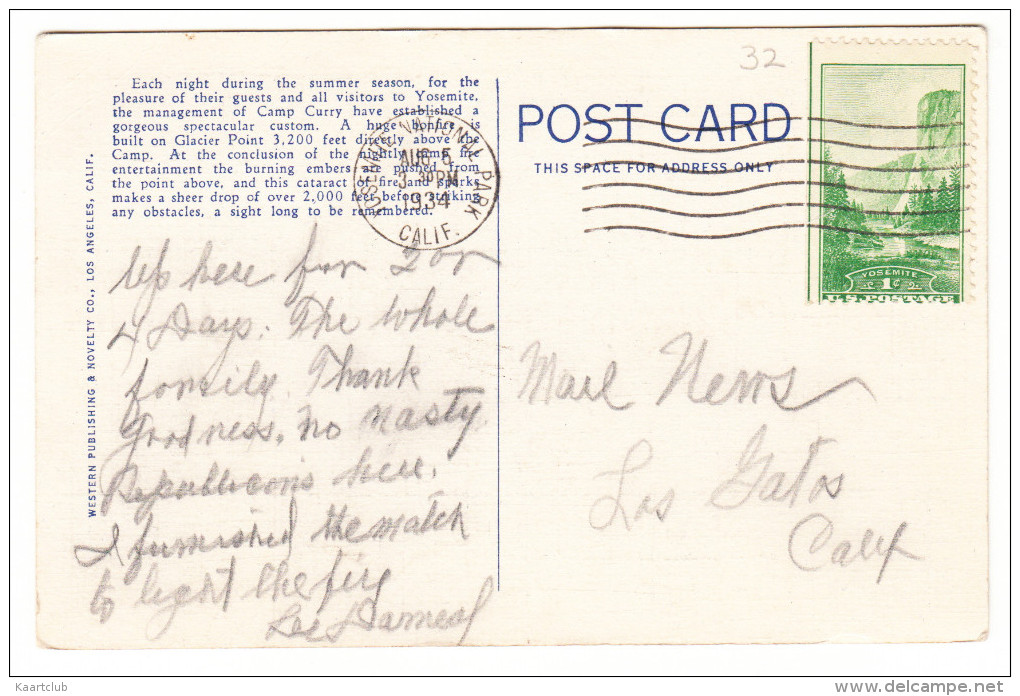 32
Each night during the summer season, for the
pleasure of their guests and all visitors to Yosemite,
the management of Camp Curry have established a
gorgeous spectacular custom. A huge bonfire is
built on Glacier Point 3,200 feet directly above the
Camp. At the conclusion of the nightly camp fire
entertainment the burning embers are pushed from
the point above, and this cataract of fire and sparks
makes a sheer drop of over 2,000 feet before striking
any obstacles, a sight long to be remembered.
WESTERN PUBLISHING & NOVELTY CO., LOS ANGELES, CALIF.
YOSEMITE NATIONAL PARK
AUG 5
3 30 PM
1934
CALIF.
POST CARD
THIS SPACE FOR ADDRESS ONLY
YOSEMITE
1¢
U.S. POSTAGE
Up here for 2 or
4 Days. The whole
family. Thank
Goodness, no nasty
Republicans here.
I furnished the match
to light the fire
Mail News
Los Gatos
Calif
Kaartclub
www.delcampe.net